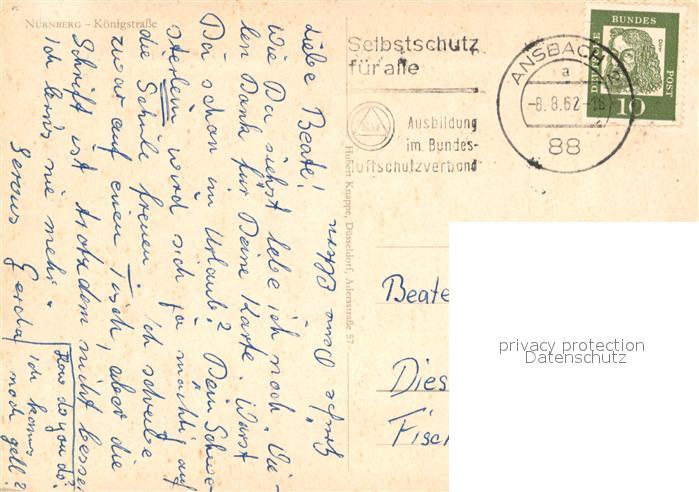 NÜRNBERG – Königstraße
Liebe Beate!
Wie Du siehst lebe ich noch. Vie-
len Dank für Deine Karte. Warst
Du schon im Urlaub? Dein Schwe-
sterlein wird sich ja mächtig auf
die Schule freuen. Ich schreibe
zwar auf einen Tisch, aber die
Schrift ist trotzdem nicht besser
Ich lern's nie mehr.
Servus Gerda
How do you do?
Ich kanns
noch gell?
Hubert Knappe, Düsseldorf, Adersstraße 57
Selbstschutz
für alle
Ausbildung
im Bundes-
luftschutzverband
ANSBACH
a
-8.8.62-18
88
DEUTSCHE
BUNDES
POST
Dürer
10
Beate
Dies
Fisch
privacy protection
Datenschutz